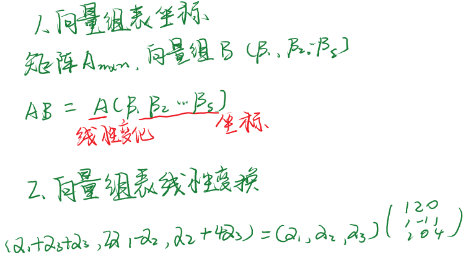 1、向量组表坐标
矩阵 Aₘₓₙ. 向量组 B (β₁, β₂…βₛ)
AB = A(β₁ β₂ … βₛ)
线性变化 坐标
2、向量组表线性变换
(α₁+α₃+α₃, 2α₁-α₂, α₂+4α₃) = (α₁, α₂, α₃) (1 2 0
1 -1 1
2 0 4)